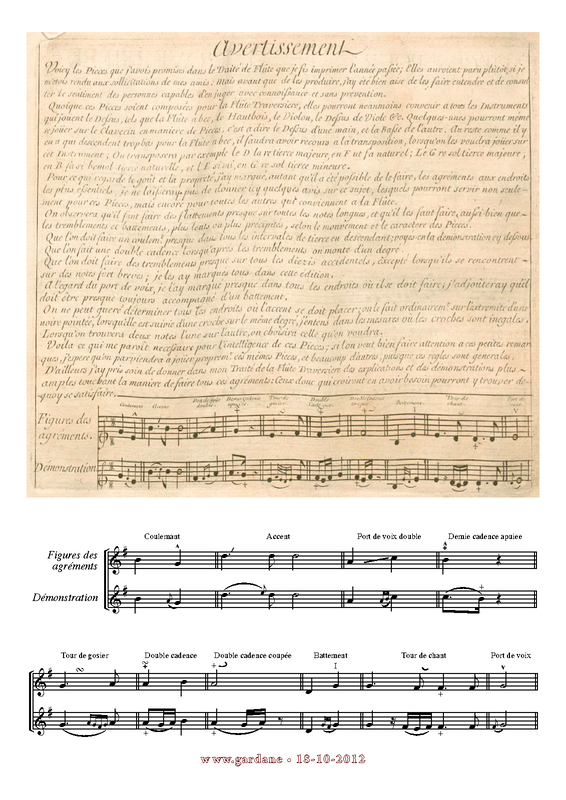 Avertissement
Voicy les Pieces que j'avois promises dans le Traité de Flûte que je fis imprimer l'année passée; Elles auroient paru plûtôt, si je
m'étois rendu aux sollicitations de mes amis: Mais avant que de les produire, j'ay été bien aise de les faire entendre et de consul-
ter le sentiment des personnes capables d'en juger avec connoissance et sans prevention.
Quoique ces Pieces soient composées pour la Flûte Traversiere, elles pourront neanmoins convenir a tous les Instruments
qui jouent le Dessus, tels que la Flûte a bec, le Hautbois, le Violon, le Dessus de Viole &c. Quelques-unes pourront même
se jouer sur le Clavecin en maniere de Pieces. c'est a dire le Dessus d'une main, et la Basse de l'autre. Au reste comme il y
en a qui descendent trop bas pour la Flûte a bec, il faudra avoir recours a la transposition, lorsqu'on les voudra jouer sur
cet Instrument; On transposera par exemple le D la re tierce majeure, en F ut fa naturel; Le G re sol tierce majeure,
en B fa si bemol tierce naturelle, et l'E si mi, en G re sol tierce mineure.
Pour ce qui regarde le goût et la propreté, j'ay marqué, autant qu'il a été possible de le faire, les agréments aux endroits
les plus essentiels, je ne laisseray pas de donner icy quelques avis sur ce sujet, lesquels pourront servir non seule-
ment pour ces Pieces, mais encore pour toutes les autres qui conviennent a la Flûte.
On observera qu'il faut faire des flattements presque sur toutes les notes longues, et qu'il les faut faire, aussi-bien que
les tremblements et battements, plus lents ou plus précipités, selon le mouvement et le caractere des Pieces.
Que l'on doit faire un coulem.t presque dans tous les intervales de tierce en descendant; voyez en la démonstration cy dessous.
Que l'on fait une double cadence lorsqu'après les tremblements on monte d'un degré.
Que l'on doit faire des tremblements presque sur tous les diezis accidentels, excepté lorsqu'ils se rencontrent
sur des notes fort breves; je les ay marqués tous dans cette édition.
A l'égard du port de voix, je l'ay marqué presque dans tous les endroits où il se doit faire; j'adjouteray qu'il
doit être presque toujours accompagné d'un battement.
On ne peut guere déterminer tous les endroits où l'accent se doit placer; on le fait ordinairem.t sur l'extremité d'une
noire pointée, lorsqu'elle est suivie d'une croche sur le même degré, j'entens dans les mesures où les croches sont inegales.
Lorsqu'on trouvera deux notes l'une sur l'autre, on choisira celle qu'on voudra.
Voila ce qui me paroît necessaire pour l'intelligence de ces Pieces; si l'on veut bien faire attention a ces petites remar-
ques, j'espere qu'on parviendra a jouer proprem.t ces mêmes Pieces, et beaucoup d'autres, puisque ces regles sont generales.
D'ailleurs j'ay pris soin de donner dans mon Traité de la Flûte Traversiere des explications et des démonstrations plus
amples touchant la maniere de faire tous ces agréments: Ceux donc qui croiront en avoir besoin pourront y trouver de
quoy se satisfaire.
Coulement Accent Port de voix double. Demie cadence apuiée Tour de gosier. Double Cadence. Double Cadence coupée Battement. Tour de chant. Port de voix
Figures des
agréments.
Démonstration
Coulemant Accent Port de voix double Demie cadence apuiee
Figures des
agréments
Démonstration
Tour de gosier Double cadence Double cadence coupée Battement Tour de chant Port de voix
www.gardane - 18-10-2012